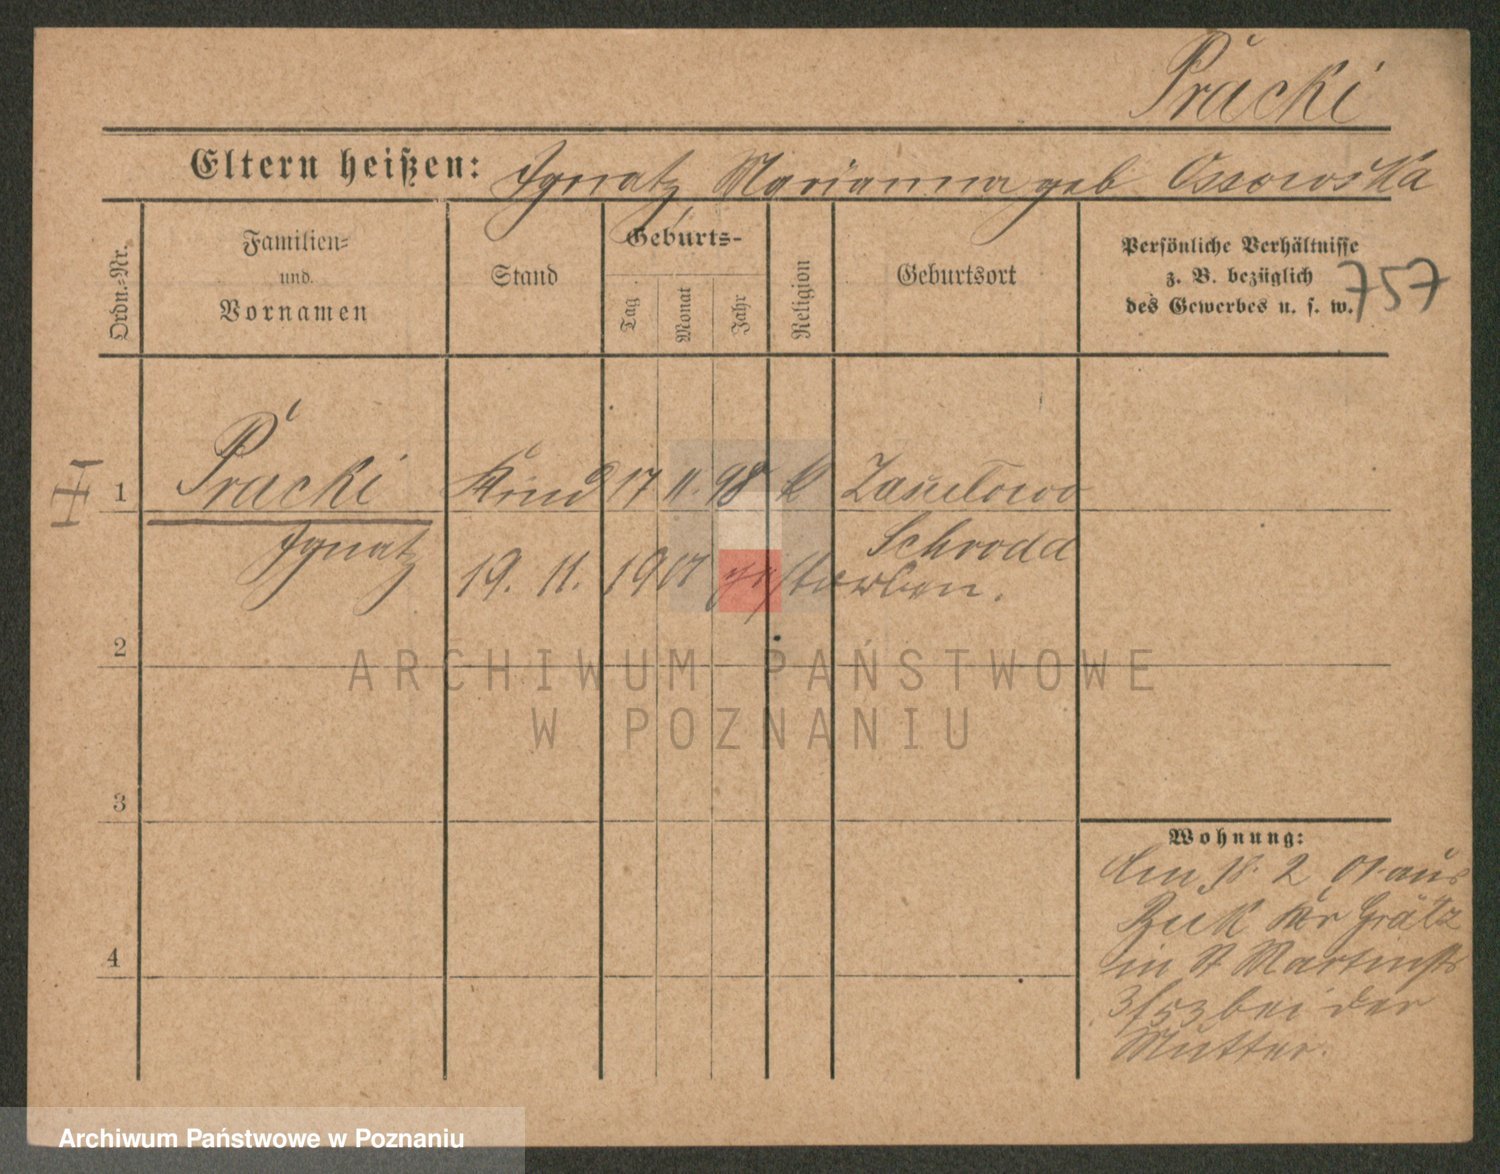 Pracki
Eltern heißen: Ignatz Marianna geb Ossowska
Ordn.-Nr.
Familien-
und
Vornamen
Stand
Geburts-
Tag
Monat
Jahr
Religion
Geburtsort
Persönliche Verhältnisse
z. B. bezüglich
des Gewerbes u. s. w.
757
1 Pracki Kind 17 11. 98 k
Ignatz
Schroda
19. 11. 1901 gestorben.
2
ARCHIWUM PAŃSTWOWE
W POZNANIU
3
4
Wohnung:
Am 18. 2 01. aus
Buk Kr Grätz
in St Martinstr
3/53 bei der
Mutter.
Archiwum Państwowe w Poznaniu